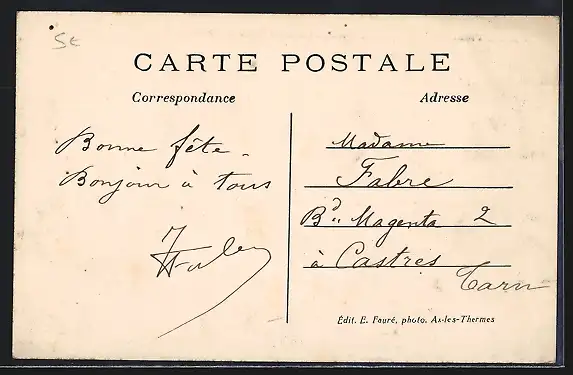 5€
CARTE POSTALE
Correspondance
Adresse
Bonne fête.
Bonjour à tous
Madame
Fabre
Bd Magenta 2
à Castres
Tarn
Édit. E. Fauré, photo. Ax-les-Thermes